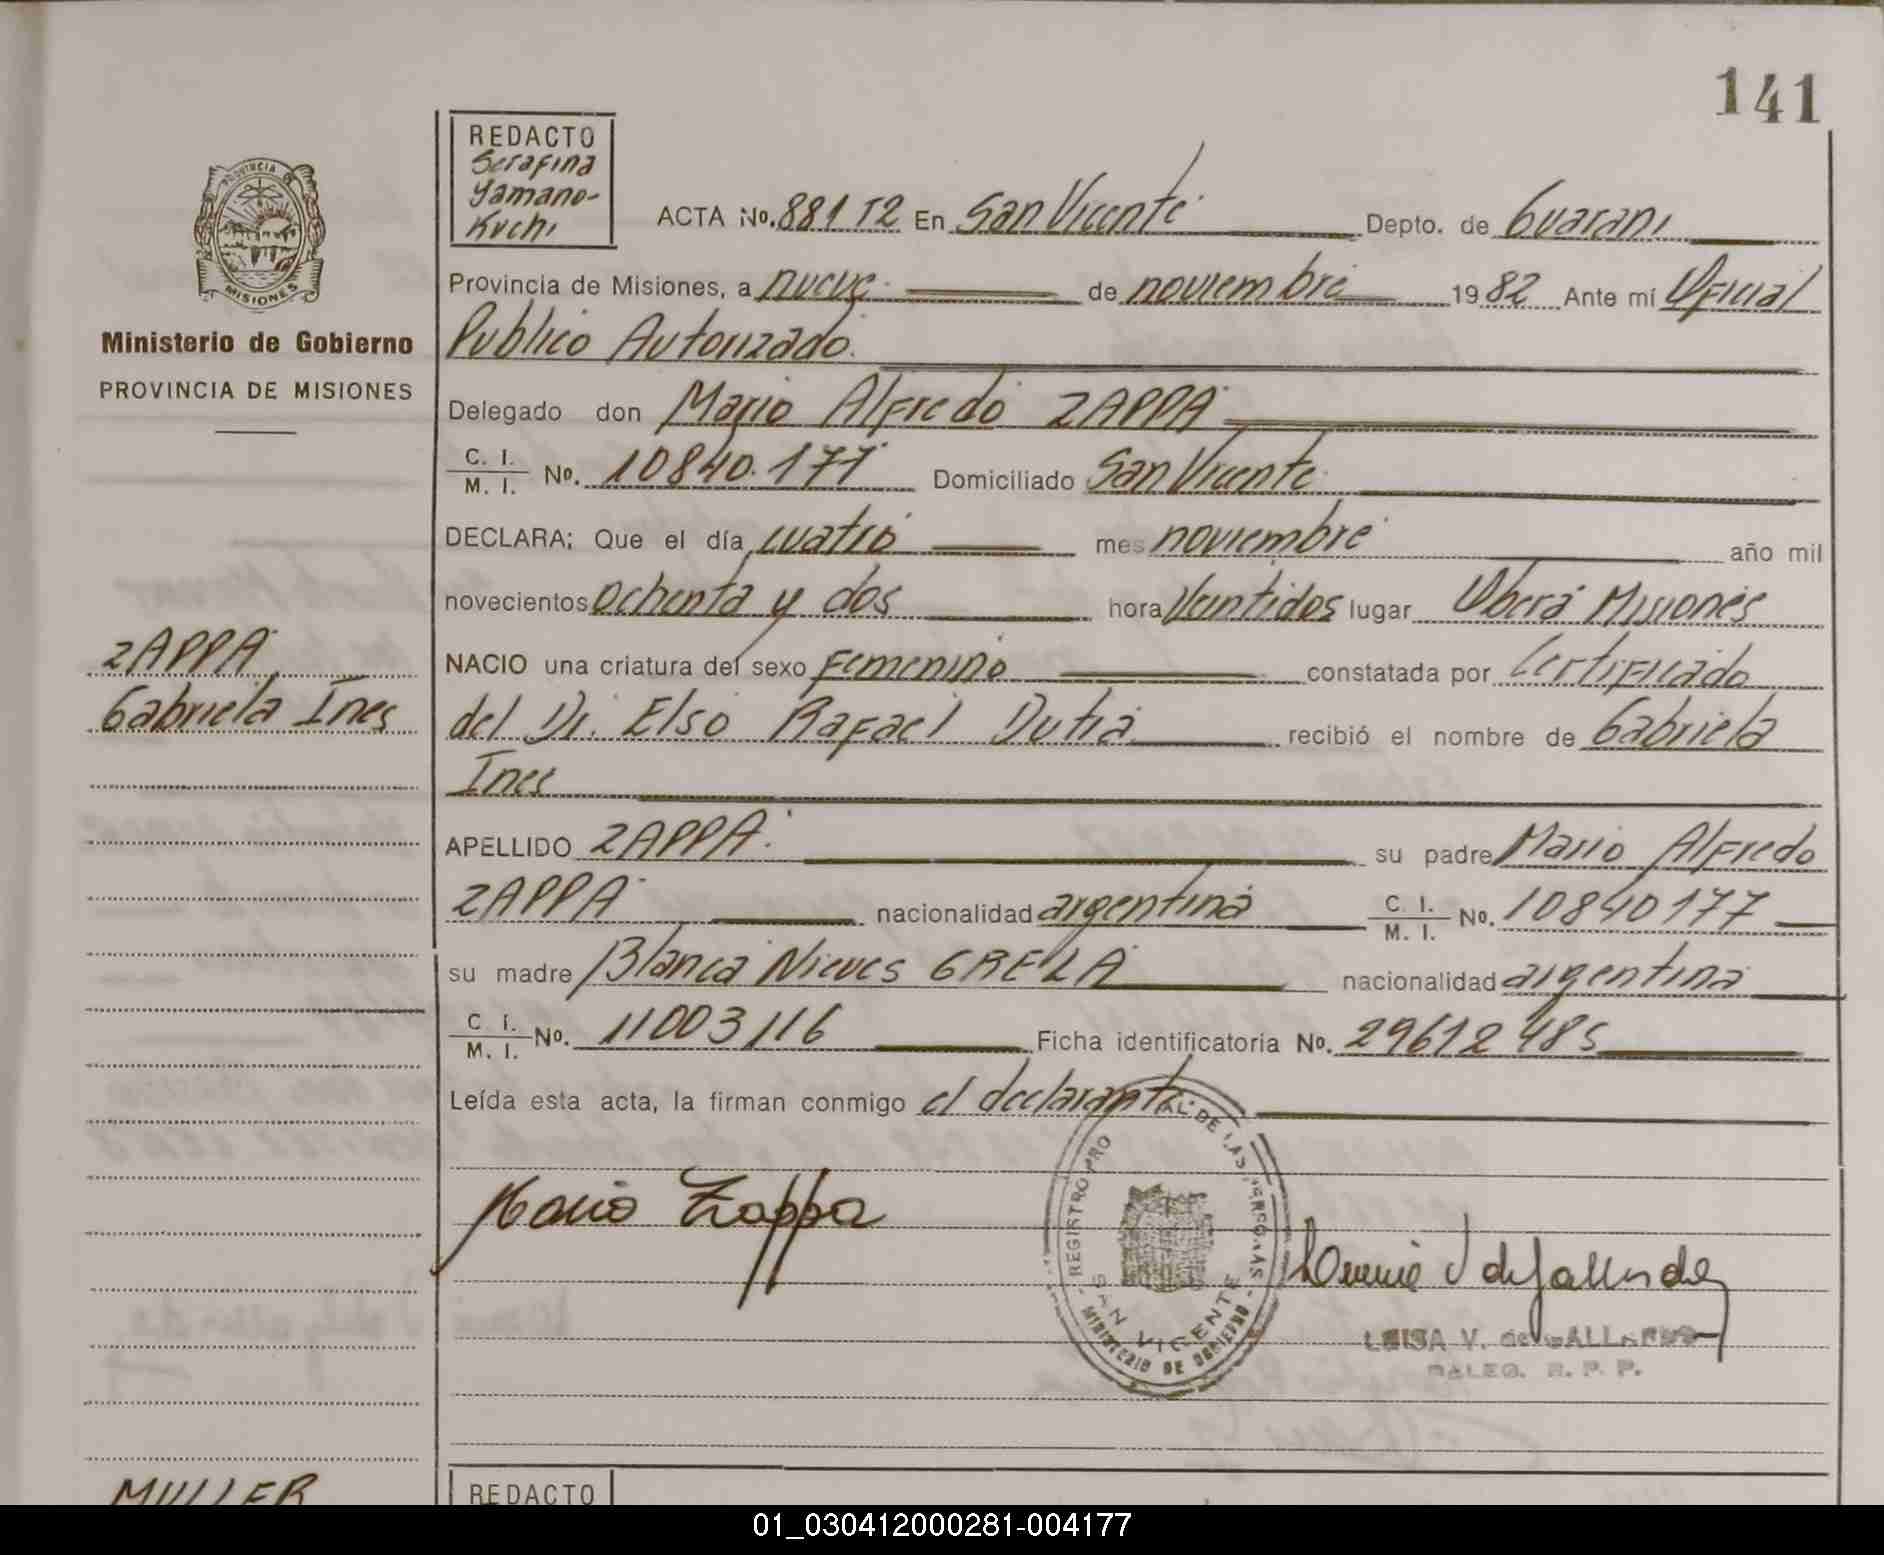 141
REDACTO
Serafina
Yamano-
Kuchi
PROVINCIA DE
MISIONES
Ministerio de Gobierno
PROVINCIA DE MISIONES
ACTA No. 881 T2 En San Vicente Depto. de Guaraní
Provincia de Misiones, a nueve de noviembre 1982 Ante mí Oficial
Publico Autorizado.
Delegado don Mario Alfredo ZAPPA
C. I. / M. I. No. 10840.177 Domiciliado San Vicente
DECLARA; Que el día cuatro mes noviembre año mil
novecientos ochenta y dos hora Veintidos lugar Oberá Misiones
ZAPPA
Gabriela Ines
NACIO una criatura del sexo Femenino constatada por Certificado
del Dr. Elso Rafael Dutra recibió el nombre de Gabriela
Ines
APELLIDO ZAPPA. su padre Mario Alfredo
ZAPPA nacionalidad argentina C. I. / M. I. No. 10840177
su madre Blanca Nieves GRELA nacionalidad argentina
C. I. / M. I. No. 11003116 Ficha identificatoria No. 29612485
Leída esta acta, la firman conmigo el declarante
Mario Zappa
REGISTRO PRO AL DE LAS PERSONAS
SAN VICENTE
MINISTERIO DE GOBIERNO
LUISA V. de GALLARDO
DELEG. R. P. P.
MULLER
REDACTO
01_030412000281-004177